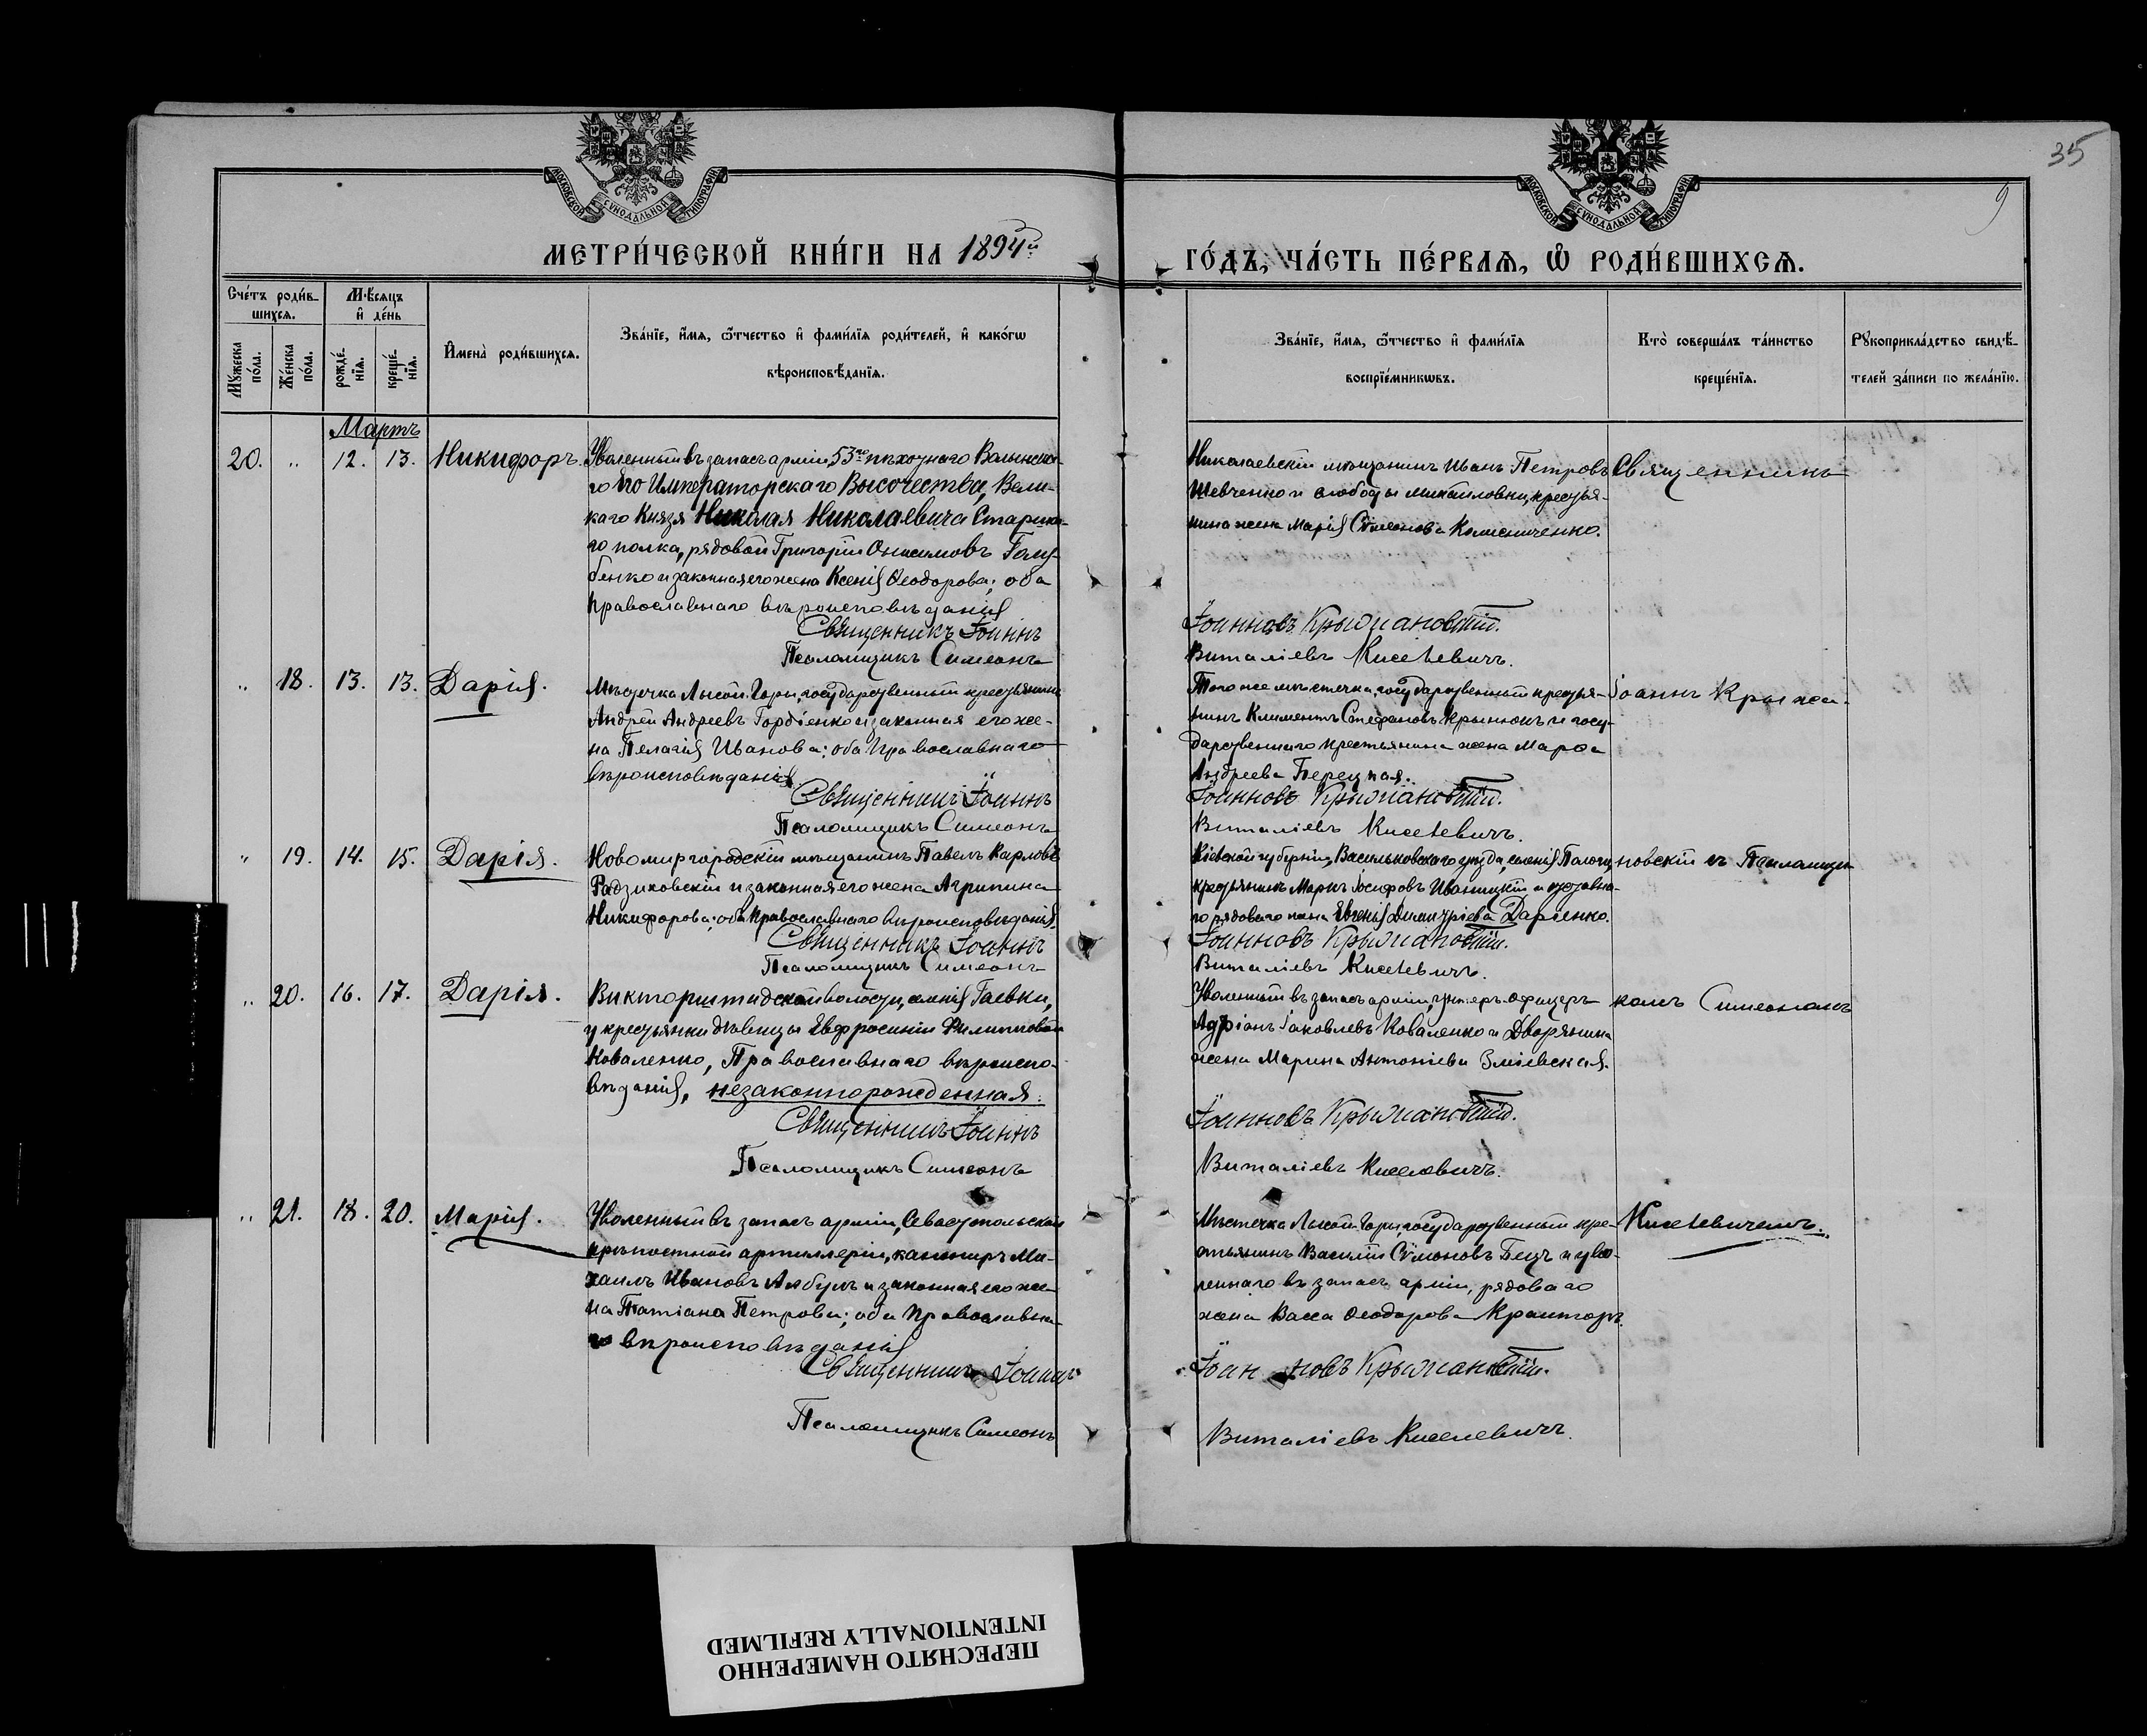 35
9
МОСКОВСКОЙ СѴНОДАЛЬНОЙ ТИПОГРАФІИ
МОСКОВСКОЙ СѴНОДАЛЬНОЙ ТИПОГРАФІИ
МЕТРИ́ЧЕСКОЙ КНИ́ГИ НА 1894й
ГО́ДЪ, ЧА́СТЬ ПЕ́РВАѦ, Ѡ҆ РОДИ́ВШИХСѦ.
Сче́тъ роди́в-
шихсѧ.
Мꙋ́жеска по́ла.
Же́нска по́ла.
Мѣ́сѧцъ
и҆ де́нь
рожде́-
нїѧ.
креще́-
нїѧ.
И҆мена̀ роди́вшихсѧ.
Зва́нїе, и҆́мѧ, ѻ҆́тчество и҆ фами́лїѧ роди́телей, и҆ како́гѡ
вѣроисповѣ́данїѧ.
Зва́нїе, и҆́мѧ, ѻ҆́тчество и҆ фами́лїѧ
воспрїе́мникѡвъ.
Кто̀ соверша́лъ та́инство
креще́нїѧ.
Рꙋкоприкла́дство свидѣ́-
телей за́писи по жела́нїю.
Мартъ
20. „ 12. 13. Никифоръ.
Уволенный въ запасъ арміи 53го пѣхотнаго Волынска-
го Его Императорскаго Высочества, Вели-
каго Князя Николая Николаевича Старша-
го полка, рядовой Григорій Онисимовъ Голу-
бенко и законная его жена Ксенія Ѳеодорова; оба
православнаго вѣроисповѣданія
Священникъ Іоаннъ
Псаломщикъ Симеонъ
Николаевскій мѣщанинъ Иванъ Петровъ
Шевченко и слободы Михайловки, крестья-
нина жена Марія Симеонова
Іоанновъ Крыжановскій.
Виталіевъ Киселевичъ.
Священникъ
„ 18. 13. 13. Дарія.
Мѣстечка Лысой-Горы, государственный крестьянинъ
Андрей Андреевъ Гордіенко и законная его же-
на Пелагія Иванова; оба Православнаго
вѣроисповѣданія
Священникъ Іоаннъ
Псаломщикъ Симеонъ
Того же мѣстечка, государственный крестья-
нинъ Климентъ Стефановъ и госу-
дарственнаго крестьянина жена Марѳа
Андреева
Іоанновъ Крыжановскій.
Виталіевъ Киселевичъ.
Іоаннъ Крыжа-
„ 19. 14. 15. Дарія.
Новомиргородскій мѣщанинъ Павелъ Карловъ
Радзиховскій и законная его жена Агрипина
Никифорова; оба Православнаго вѣроисповѣданія.
Священникъ Іоаннъ
Псаломщикъ Симеонъ
Кіевской губерніи, Васильковскаго уѣзда, селенія
крестьянинъ Маркъ Іосифовъ Иваницкій и отставна-
го рядоваго жена Евгенія Димитріева Даріенко.
Іоанновъ Крыжановскій.
Виталіевъ Киселевичъ.
новскій съ Псаломщи-
„ 20. 16. 17. Дарія.
Викторштадской волости, селенія Гаевки,
у крестьянки дѣвицы Евфросиніи Филипповой
Коваленко, Православнаго вѣроиспо-
вѣданія, незаконнорожденная.
Священникъ Іоаннъ
Псаломщикъ Симеонъ
Уволенный въ запасъ арміи, унтеръ-офицеръ
Адріанъ Іаковлевъ Коваленко и Дворянина
жена Марина Антоніева Зміевская.
Іоанновъ Крыжановскій.
Виталіевъ Киселевичъ.
комъ Симеономъ
„ 21. 18. 20. Марія.
Уволенный въ запасъ арміи, Севастопольской
крѣпостной артиллеріи, канониръ Ми-
хаилъ Ивановъ Амбулъ и законная его же-
на Татіана Петрова; оба Православна-
го вѣроисповѣданія
Священникъ Іоаннъ
Псаломщикъ Симеонъ
Мѣстечка Лысой-Горы, государственный кре-
стьянинъ Василій Сѵмоновъ Бецъ и уво-
леннаго въ запасъ арміи, рядоваго
жена Васса Ѳеодорова
Іоанновъ Крыжановскій.
Виталіевъ Киселевичъ.
Киселевичемъ.
ПЕРЕСНЯТО НАМЕРЕННО
INTENTIONALLY REFILMED